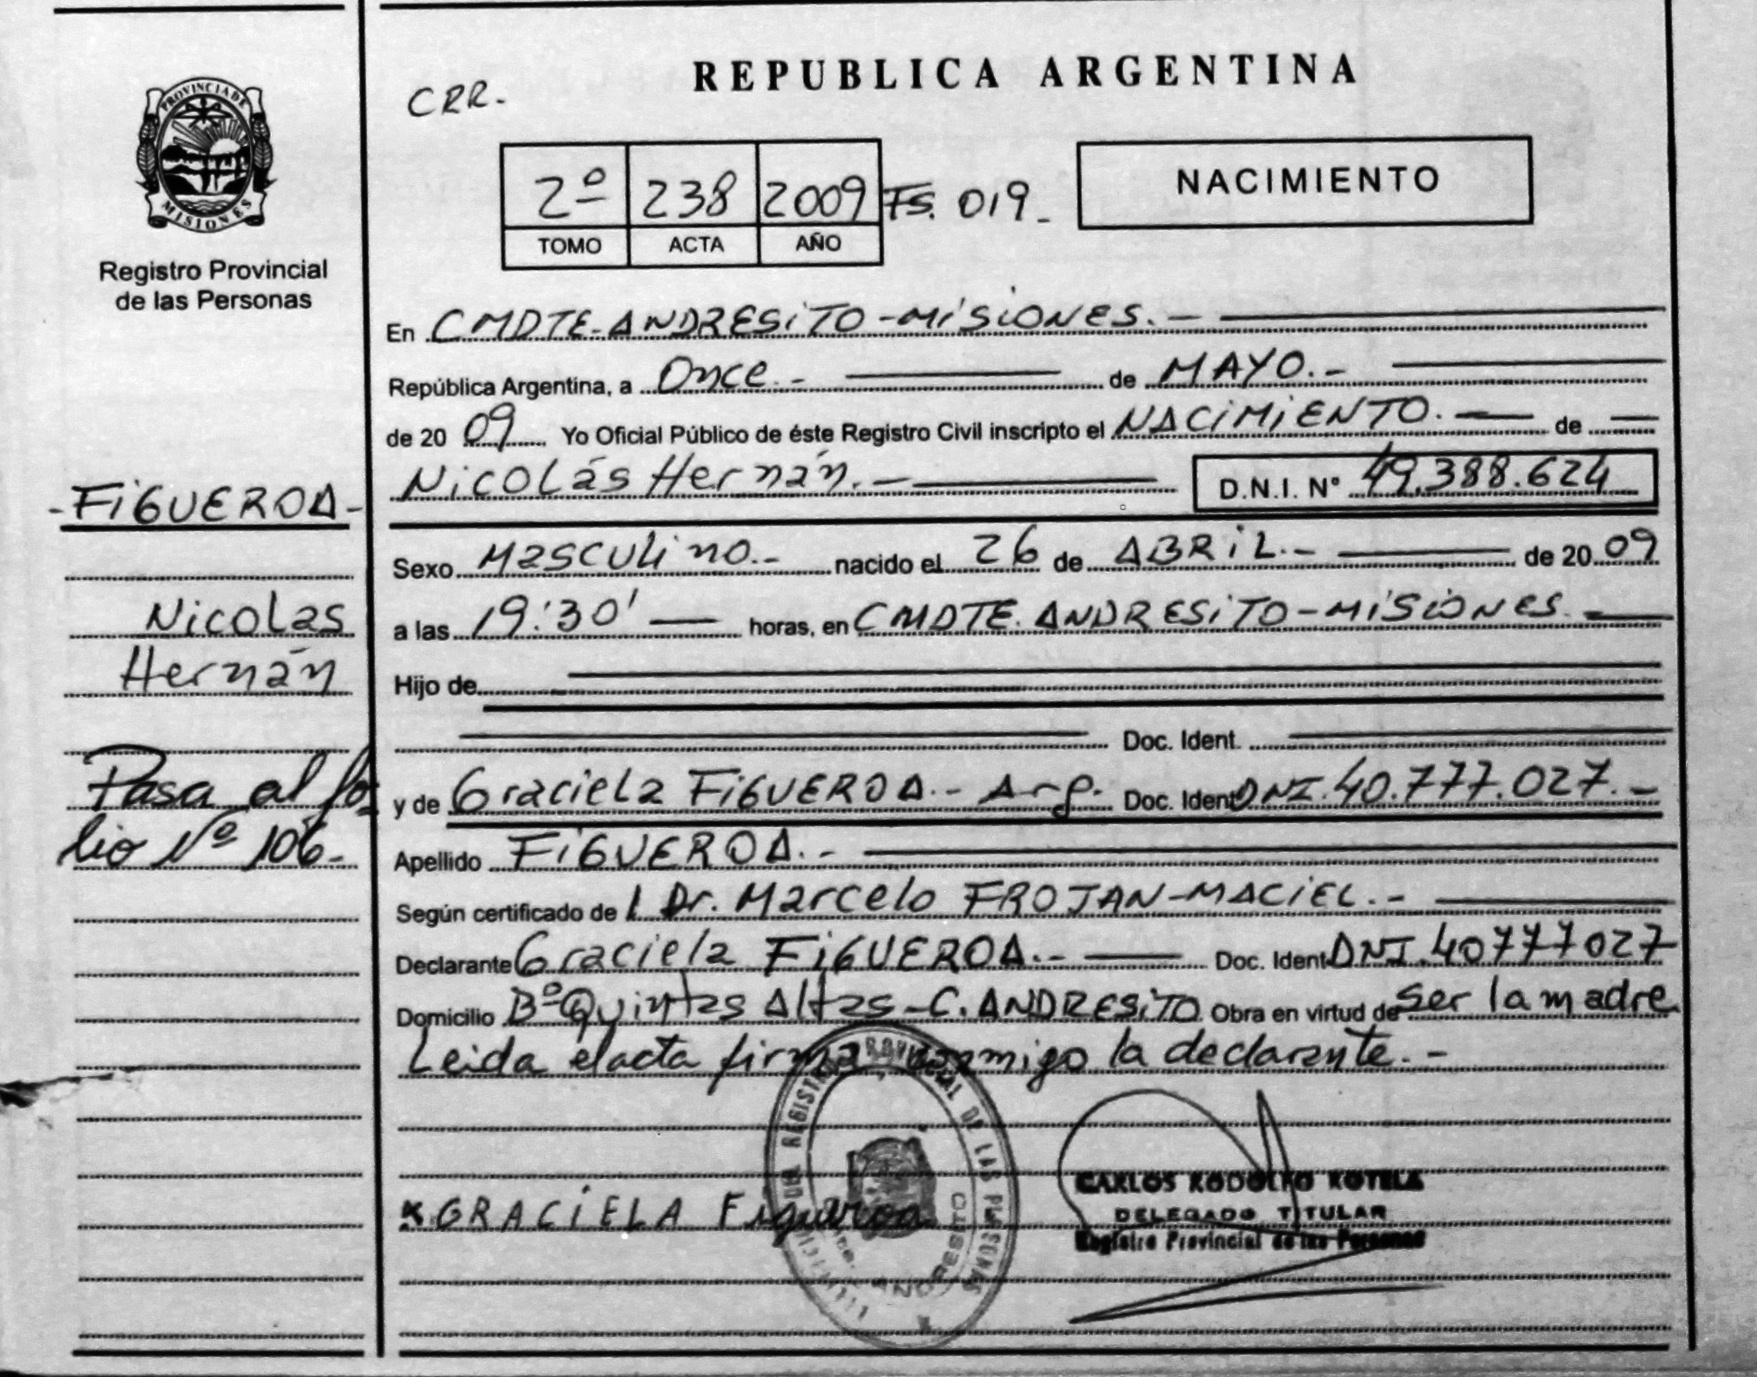 PROVINCIA DE
MISIONES
Registro Provincial
de las Personas
CRR.-
REPUBLICA ARGENTINA
2º 238 2009 FS. 019_
TOMO ACTA AÑO
NACIMIENTO
En CMDTE. ANDRESITO - MISIONES. -
República Argentina, a Once. - de MAYO. -
de 20 09 Yo Oficial Público de éste Registro Civil inscripto el NACIMIENTO. - de -
Nicolás Hernán. - D.N.I. Nº 49.388.624
- FIGUEROA -
Nicolas
Hernán
Sexo Masculino. - nacido el 26 de ABRIL. - de 20 09
a las 19:30' — horas, en CMDTE. ANDRESITO - MISIONES. -
Hijo de
Doc. Ident.
y de Graciela FIGUEROA. - Arg. Doc. Ident DNI. 40.777.027. -
Pasa al fo-
lio Nº 106.-
Apellido FIGUEROA. -
Según certificado de l Dr. Marcelo FROJAN-MACIEL. -
Declarante Graciela FIGUEROA. - Doc. Ident DNI. 40777027
Domicilio Bº Quintas Altas - C. ANDRESITO Obra en virtud de ser la madre
Leida el acta firma conmigo la declarante. -
REGISTRO PROVINCIAL DE LAS PERSONAS
ANDRESITO
GRACIELA Figueroa
CARLOS RODOLFO ROTELA
DELEGADO TITULAR
Registro Provincial de las Personas